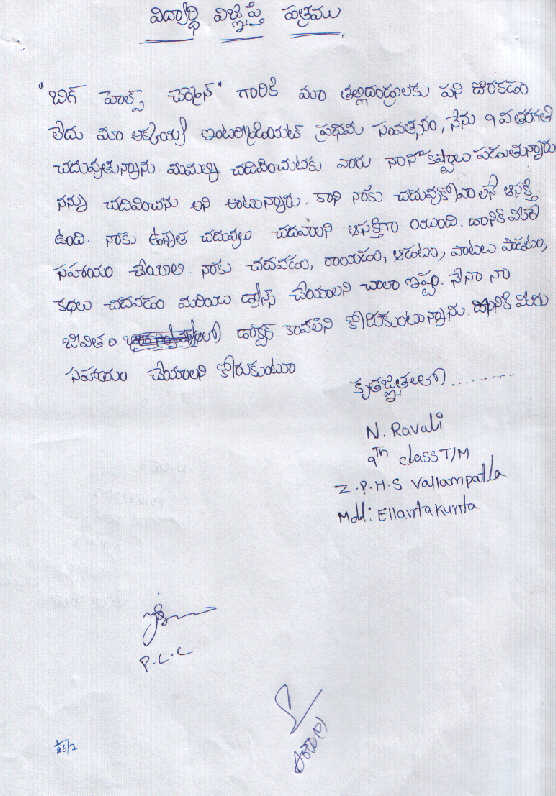 విద్యార్థి విజ్ఞప్తి పత్రము
"బిగ్ హెల్ప్ చెర్మెన్" గారికి మా తల్లిదండ్రులకు పని దొరకడం
లేదు మా అక్కయ్య ఇంటర్మీడియట్ ప్రథమ సంవత్సరం, నేను 9వ తరగతి
చదువుతున్నాను మమ్మల్ని చదివించుటకు వారు నానా కష్టాలు పడుతున్నారు
నన్ను చదివించను అని అంటున్నారు. కాని నాకు చదువుకోవాలనే ఆసక్తి
ఉంది. నాకు ఉన్నత చదువులు చదవాలని ఆసక్తిగా యుంది. దానికి మీరే
సహాయం చేయాలి నాకు చదవడం, రాయడం, ఆడటం, పాటలు పాడటం,
కథలు చదవడం మరియు డ్యాన్స్ చేయాలని చాలా ఇష్టం. నేనూ నా
జీవితం లో డాక్టర్ కావాలని కోరుకుంటున్నాను దానికి మీరు
సహాయం చేయాలని కోరుకుంటూ
కృతజ్ఞతలతో........
N. Ravali
9th class T/M
Z.P.H.S Vallampatla
Mdl: Ellantakunta
P.L.C